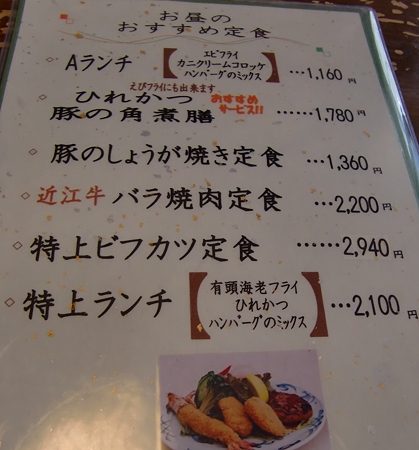 お昼の
おすすめ定食
◇ Aランチ
エビフライ
カニクリームコロッケ
ハンバーグのミックス
…1,160円
えびフライにも出来ます
ひれかつ
豚の角煮膳
おすすめ
サービス!!
……1,780円
◇ 豚のしょうが焼き定食 …1,360円
◇ 近江牛 バラ焼肉定食 …2,200円
◇ 特上ビフカツ定食 ……2,940円
◇ 特上ランチ
有頭海老フライ
ひれかつ
ハンバーグのミックス
…2,100円